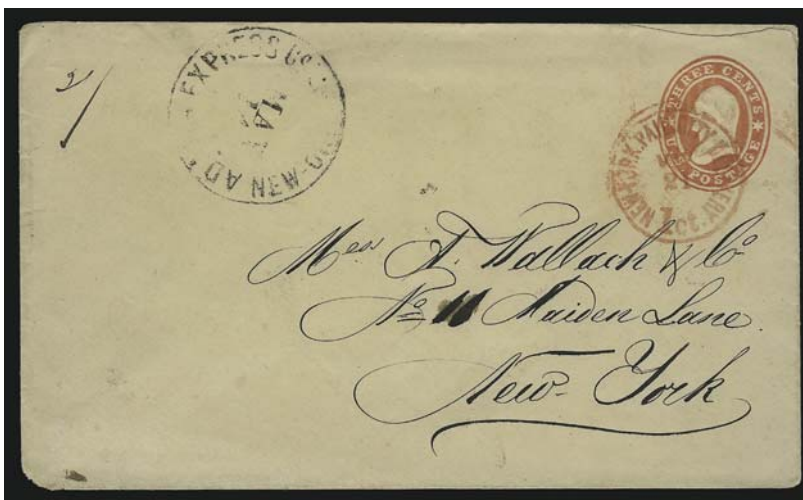 2/
EXPRESS CO.
THREE CENTS
U.S. POSTAGE
NEW-YORK. PAI
Mess A. Wallach & Co
No 11 Maiden Lane.
New-York